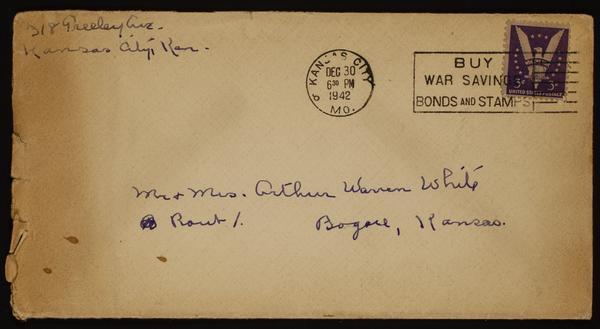 318 Greeley Ave.
Kansas City, Kan.
KANSAS CITY
DEC 30
6 30 PM
1942
MO.
BUY
WAR SAVINGS
BONDS AND STAMPS
3¢ 3¢
UNITED STATES POSTAGE
Mr & Mrs. Arthur Warren White
Rout 1. Bogue, Kansas.